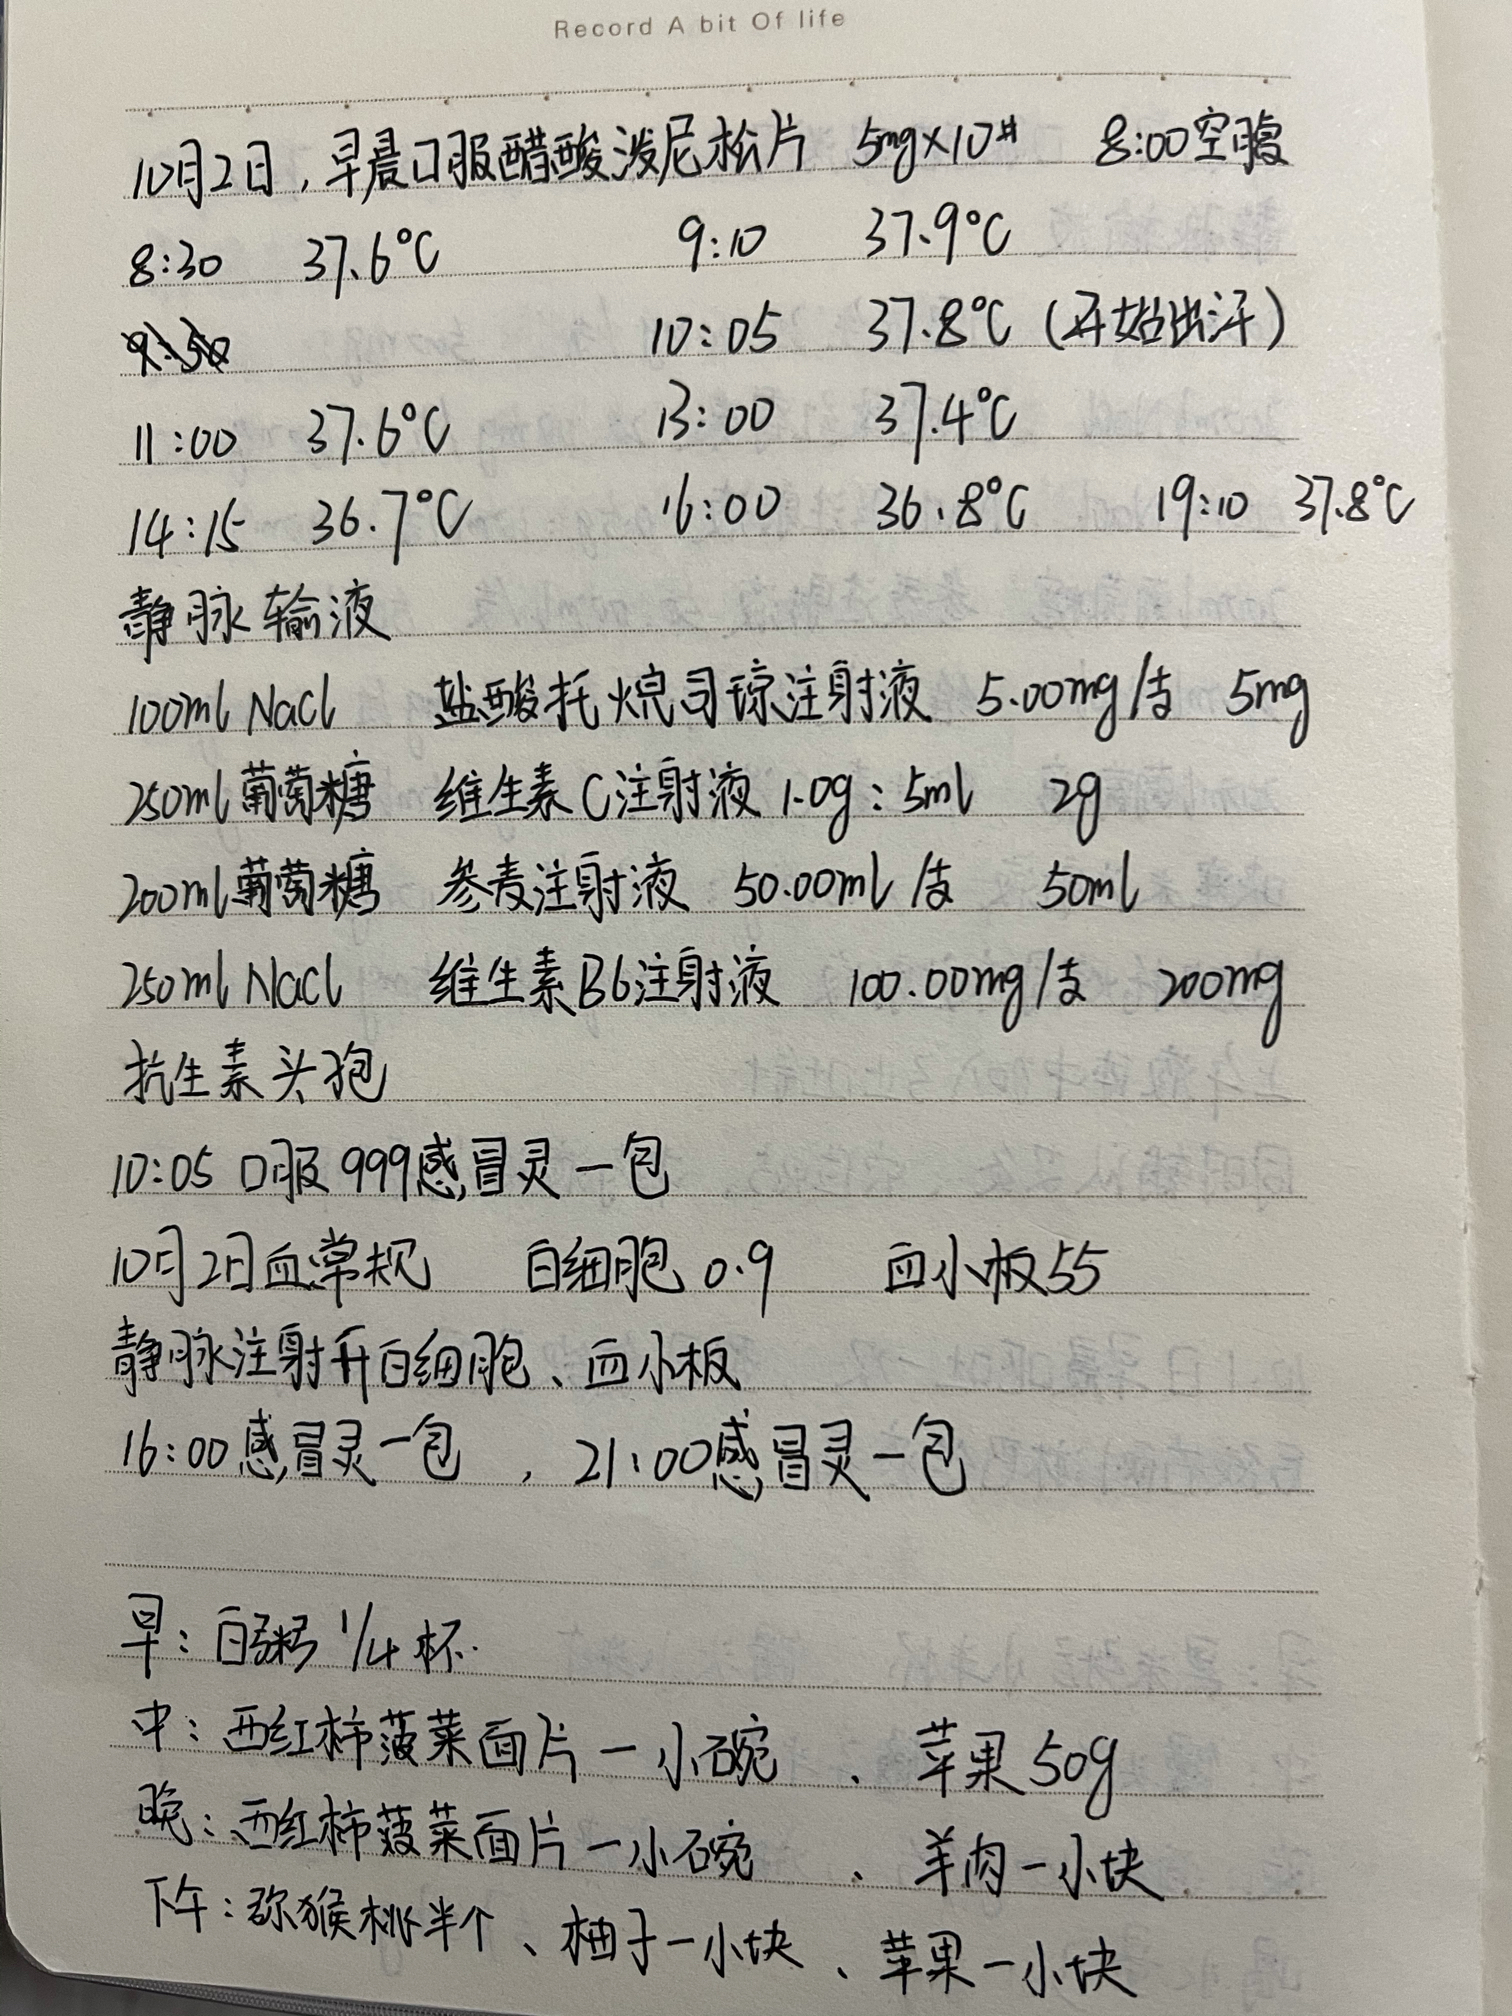 Record A bit Of life
10月2日，早晨口服醋酸泼尼松片 5mg×10# 8:00空腹
8:30 37.6℃ 9:10 37.9℃
10:05 37.8℃（开始出汗）
11:00 37.6℃ 13:00 37.4℃
14:15 36.7℃ 16:00 36.8℃ 19:10 37.8℃
静脉输液
100ml NaCl 盐酸托烷司琼注射液 5.00mg/支 5mg
250ml葡萄糖 维生素C注射液 1.0g:5ml 2g
200ml葡萄糖 参麦注射液 50.00ml/支 50ml
250ml NaCl 维生素B6注射液 100.00mg/支 200mg
抗生素头孢
10:05 口服999感冒灵一包
10月2日血常规 白细胞 0.9 血小板55
静脉注射升白细胞、血小板
16:00感冒灵一包，21:00感冒灵一包
早：白粥 1/4杯.
中：西红柿菠菜面片一小碗、苹果50g
晚：西红柿菠菜面片一小碗、羊肉一小块
下午：弥猴桃半个、柚子一小块、苹果一小块